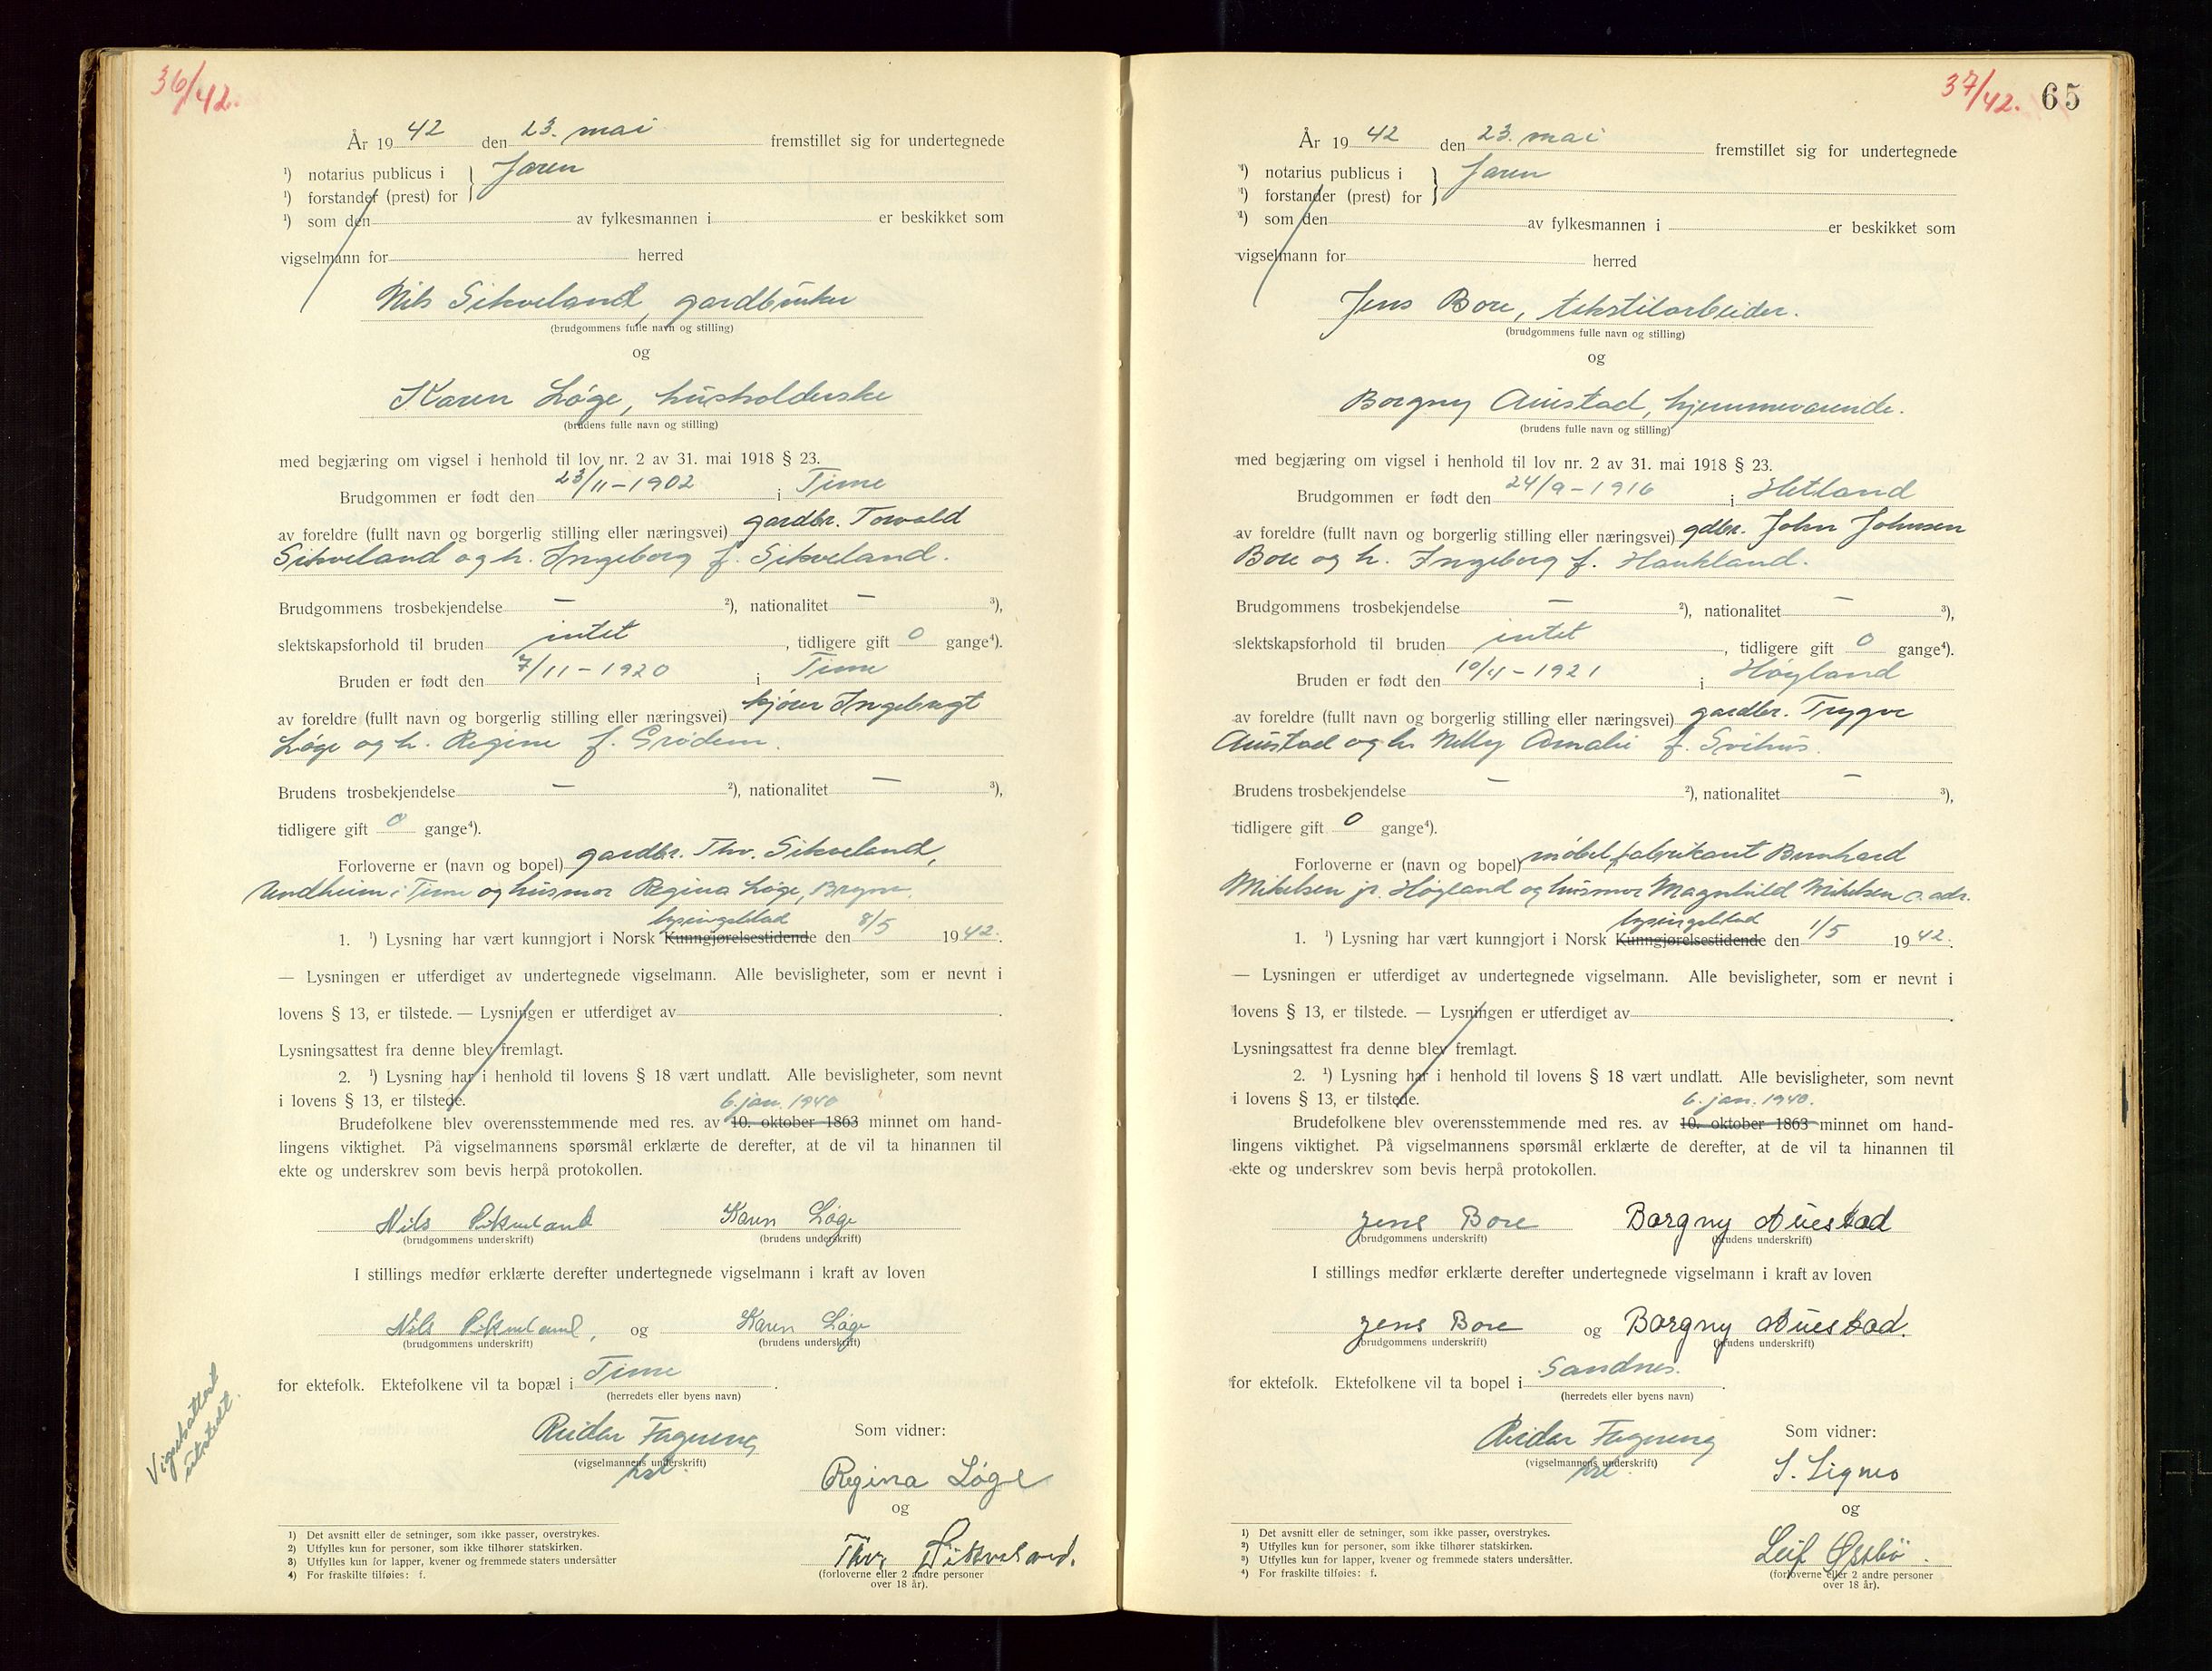 36/42.
År 1942 den 23. mai fremstillet sig for undertegnede
¹) notarius publicus i } Jæren
¹) forstander (prest) for
¹) som den av fylkesmannen i er beskikket som
vigselmann for herred
Nils Sikveland, gardbruker
(brudgommens fulle navn og stilling)
og
Karen Løge, husholderske
(brudens fulle navn og stilling)
med begjæring om vigsel i henhold til lov nr. 2 av 31. mai 1918 § 23.
Brudgommen er født den 23/11-1902 i Time
av foreldre (fullt navn og borgerlig stilling eller næringsvei) gardbr. Torvald
Sikveland og h. Ingeborg f. Sikveland.
Brudgommens trosbekjendelse — ²), nationalitet — ³),
slektskapsforhold til bruden intet, tidligere gift 0 gange⁴).
Bruden er født den 7/11-1920 i Time
av foreldre (fullt navn og borgerlig stilling eller næringsvei) kjører Ingebregt
Løge og h. Regine f. Grødem.
Brudens trosbekjendelse — ²), nationalitet — ³),
tidligere gift 0 gange⁴).
Forloverne er (navn og bopel) gardbr. Thv. Sikveland,
Undheim i Time og husmor Regina Løge, Bryne.
lysingsblad
1. ¹) Lysning har vært kunngjort i Norsk Kunngjørelsestidende den 8/5 1942.
— Lysningen er utferdiget av undertegnede vigselmann. Alle bevisligheter, som er nevnt i
lovens § 13, er tilstede. — Lysningen er utferdiget av .
Lysningsattest fra denne blev fremlagt.
2. ¹) Lysning har i henhold til lovens § 18 vært undlatt. Alle bevisligheter, som nevnt
i lovens § 13, er tilstede.
6. jan. 1940
Brudefolkene blev overensstemmende med res. av 10. oktober 1863 minnet om hand-
lingens viktighet. På vigselmannens spørsmål erklærte de derefter, at de vil ta hinannen til
ekte og underskrev som bevis herpå protokollen.
Nils Sikveland Karen Løge
(brudgommens underskrift) (brudens underskrift)
I stillings medfør erklærte derefter undertegnede vigselmann i kraft av loven
Nils Sikveland, og Karen Løge
(brudgommens underskrift) (brudens underskrift)
for ektefolk. Ektefolkene vil ta bopæl i Time.
(herredets eller byens navn)
Vigselsattest
utstedt.
Reidar Fagneng Som vidner:
(vigselmannens underskrift)
Regina Løge
og
Thv. Sikveland.
(forloverne eller 2 andre personer
over 18 år).
1) Det avsnitt eller de setninger, som ikke passer, overstrykes.
2) Utfylles kun for personer, som ikke tilhører statskirken.
3) Utfylles kun for lapper, kvener og fremmede staters undersåtter
4) For fraskilte tilføies: f.
37/42. 65
År 1942 den 23. mai fremstillet sig for undertegnede
¹) notarius publicus i } Jæren
¹) forstander (prest) for
¹) som den av fylkesmannen i er beskikket som
vigselmann for herred
Jens Bore, tekstilarbeider.
(brudgommens fulle navn og stilling)
og
Borgny Auestad, hjemmeværende.
(brudens fulle navn og stilling)
med begjæring om vigsel i henhold til lov nr. 2 av 31. mai 1918 § 23.
Brudgommen er født den 24/9-1916 i Hetland
av foreldre (fullt navn og borgerlig stilling eller næringsvei) gdbr. John Johnsen
Bore og h. Ingeborg f. Haukland.
Brudgommens trosbekjendelse — ²), nationalitet — ³),
slektskapsforhold til bruden intet, tidligere gift 0 gange⁴).
Bruden er født den 10/4-1921 i Høyland
av foreldre (fullt navn og borgerlig stilling eller næringsvei) gardbr. Trygve
Auestad og h. Nelly Amalie f. Svihus.
Brudens trosbekjendelse — ²), nationalitet — ³),
tidligere gift 0 gange⁴).
Forloverne er (navn og bopel) møbelfabrikant Bernhard
Mikelsen jr. Høyland og husmor Magnhild Mikelsen s. adr.
lysingsblad
1. ¹) Lysning har vært kunngjort i Norsk Kunngjørelsestidende den 1/5 1942.
— Lysningen er utferdiget av undertegnede vigselmann. Alle bevisligheter, som er nevnt i
lovens § 13, er tilstede. — Lysningen er utferdiget av .
Lysningsattest fra denne blev fremlagt.
2. ¹) Lysning har i henhold til lovens § 18 vært undlatt. Alle bevisligheter, som nevnt
i lovens § 13, er tilstede.
6. jan. 1940.
Brudefolkene blev overensstemmende med res. av 10. oktober 1863 minnet om hand-
lingens viktighet. På vigselmannens spørsmål erklærte de derefter, at de vil ta hinannen til
ekte og underskrev som bevis herpå protokollen.
Jens Bore Borgny Auestad
(brudgommens underskrift) (brudens underskrift)
I stillings medfør erklærte derefter undertegnede vigselmann i kraft av loven
Jens Bore og Borgny Auestad.
(brudgommens underskrift) (brudens underskrift)
for ektefolk. Ektefolkene vil ta bopel i Sandnes.
(herredets eller byens navn)
Reidar Fagneng Som vidner:
(vigselmannens underskrift)
S. Signes
og
Leif Østbø.
(forloverne eller 2 andre personer
over 18 år).
1) Det avsnitt eller de setninger, som ikke passer, overstrykes.
2) Utfylles kun for personer, som ikke tilhører statskirken.
3) Utfylles kun for lapper, kvener og fremmede staters undersåtter.
4) For fraskilte tilføies: f.